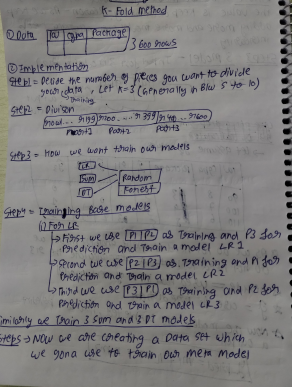 K-Fold method
① Data
IQ CGPA Package
3 600 rows
② Implementation
Step1 = Decide the number of pieces you want to divide
your data, Let K=3 (Generally in B/w 5 to 10)
Training
Step2 = Division
row... r199 r200.... r399 r400 ... r600
Part1 Part2 Part3
Step3 = How we want train our models
LR
SVM
DT
Random
Forest
Step4 = Training base models
(i) For LR
→ First we use P1 P2 as Training and P3 for
Prediction and Train a model LR1
→ Second we use P2 P3 as Training and P1 for
Prediction and Train a model LR2
→ Third we use P3 P1 as Training and P2 for
Prediction and Train a model LR3
Similarly we Train 3 SVM and 3 DT models
Step5 → Now we are creating a Data set which
we gona use to train our meta model